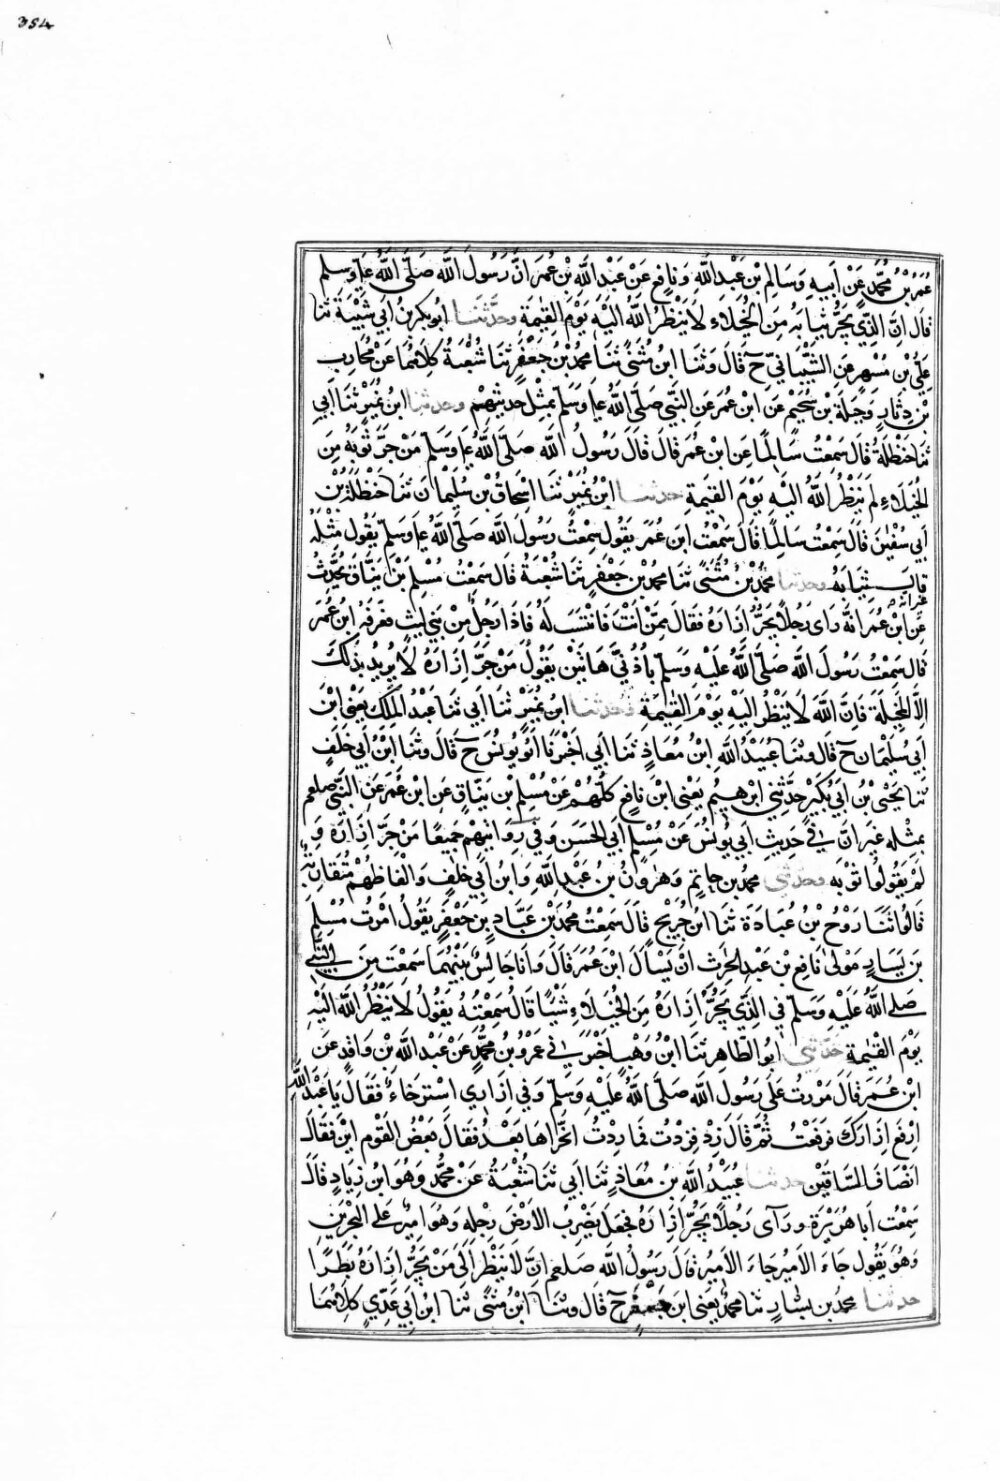 354
عُمَرُ بْنُ مُحَمَّدٍ عَنْ اَبِيهِ وَسَالِمِ بْنِ عَبْدِ اللّٰهِ وَنَافِعٍ عَنْ عَبْدِ اللّٰهِ بْنِ عُمَرَ اَنَّ رَسُولَ اللّٰهِ صَلَّى اللّٰهُ علَ وسلم
قال اِنَّ الَّذِي يَجُرُّ ثِيَابَهُ مِنَ الْخُيَلَاءِ لَا يَنْظُرُ اللّٰهُ اِلَيْهِ يَوْمَ القِيٰمَةِ وحَدَّثَنَا ابُو بَكْرِ بْنُ اَبِي شَيْبَةَ ثنا
عَلِيُّ بْنُ مُسْهِرٍ عَنِ الشَّيْبَانِيِّ ح قَالَ وَثنا ابْنُ مُثَنًّى ثَنَا مُحَمَّدُ بْنُ جَعْفَرٍ ثنا شُعْبَةُ كِلَاهُمَا عَنْ مُحَارِبِ
بْنِ دِثَارٍ وَجَبَلَةَ بْنِ سُحَيْمٍ عَنِ ابْنِ عُمَرَ عَنِ النَّبِيِّ صَلَّى اللّٰهُ علَ وَسَلَّمَ بِمِثْلِ حَدِيثِهِمْ وحدثنا ابْنُ نُمَيْرٍ ثَنَا اَبِي
ثَنَا حَنْظَلَةُ قَالَ سَمِعْتُ سَالِمًا عَنِ ابْنِ عُمَرَ قَالَ قَالَ رَسُولُ اللّٰهِ صَلَّى اللّٰهُ علَ وَسَلَّمَ مَنْ جَرَّ ثَوْبَهُ مِنَ
الْخُيَلَاءِ لَمْ يَنْظُرِ اللّٰهُ اِلَيْهِ يَوْمَ القِيٰمَةِ حدثنا ابْنُ نُمَيْرٍ ثَنَا اِسْحَاقُ بْنُ سُلَيْمَانَ ثَنَا حَنْظَلَةُ بْنُ
اَبِي سُفْيٰنَ قَالَ سَمِعْتُ سَالِمًا قَالَ سَمِعْتُ ابْنَ عُمَرَ يَقُولُ سَمِعْتُ رَسُولَ اللّٰهِ صَلَّى اللّٰهُ علَ وَسَلَّمَ يَقُولُ مِثْلَهُ
غير انه قال ثِيَابَهُ وحدثنا مُحَمَّدُ بْنُ مُثَنًّى ثنا مُحَمَّدُ بْنُ جَعْفَرٍ ثنا شُعْبَةُ قَالَ سَمِعْتُ مُسْلِمَ بْنَ يَنَّاقٍ يُحَدِّثُ
عَنِ ابْنِ عُمَرَ اَنَّهُ رَاَى رَجُلًا يَجُرُّ اِزَارَهُ فَقَالَ مِمَّنْ اَنْتَ فَانْتَسَبَ لَهُ فَاِذَا رَجُلٌ مِنْ بَنِي لَيْثٍ فَعَرَفَهُ ابْنُ عُمَرَ
قَالَ سَمِعْتُ رَسُولَ اللّٰهِ صَلَّى اللّٰهُ عَلَيْهِ وَسَلَّمَ بِاُذُنَيَّ هَاتَيْنِ يَقُولُ مَنْ جَرَّ اِزَارَهُ لَا يُرِيدُ بِذٰلِكَ
اِلَّا الْمَخِيلَةَ فَاِنَّ اللّٰهَ لَا يَنْظُرُ اِلَيْهِ يَوْمَ القِيٰمَةِ وحدثنا ابْنُ نُمَيْرٍ ثَنَا اَبِي ثنَا عَبْدُ الْمَلِكِ يَعْنِي ابْنَ
اَبِي سُلَيْمَانَ ح قَالَ وثنا عُبَيْدُ اللّٰهِ ابْنُ مُعَاذٍ ثنا اَبِي اَخْبَرَنَا اَبُو يُونُسَ ح قَالَ وثَنَا ابْنُ اَبِي خَلَفٍ
ثَنَا يَحْيَى بْنُ اَبِي بُكَيْرٍ حَدَّثَنِي ابْرٰهِيمُ يَعْنِي ابْنَ نَافِعٍ كُلُّهُمْ عَنْ مُسْلِمِ بْنِ يَنَّاقٍ عَنِ ابْنِ عُمَرَ عَنِ النَّبِيِّ صلعم
بِمِثْلِهِ غَيْرَ اَنَّ فِي حَدِيثِ اَبِي يُونُسَ عَنْ مُسْلِمٍ اَبِي الْحَسَنِ وَفِي رِوَايَتِهِمْ جَمِيعًا مَنْ جَرَّ اِزَارَهُ وَ
لَمْ يَقُولُوا ثَوْبَهُ وحَدَّثَنِي مُحَمَّدُ بْنُ حَاتِمٍ وَهٰرُونُ بْنُ عَبْدِ اللّٰهِ وَابْنُ اَبِي خَلَفٍ وَاَلْفَاظُهُمْ مُتَقَارِبَةٌ
قَالُوا ثَنَا رَوْحُ بْنُ عُبَادَةَ ثَنَا ابْنُ جُرَيْجٍ قَالَ سَمِعْتُ مُحَمَّدَ بْنَ عَبَّادِ بْنِ جَعْفَرٍ يَقُولُ اَمَرْتُ مُسْلِمَ
بْنَ يَسَارٍ مَوْلٰى نَافِعِ بْنِ عَبْدِ الحٰرِثِ اَنْ يَسْاَلَ ابْنَ عُمَرَ قَالَ وَاَنَا جَالِسٌ بَيْنَهُمَا سَمِعْتَ مِنَ النَّبِيِّ
صَلَّى اللّٰهُ عَلَيْهِ وَسَلَّمَ فِي الَّذِي يَجُرُّ اِزَارَهُ مِنَ الْخُيَلَاءِ شَيْئًا قَالَ سَمِعْتُهُ يَقُولُ لَا يَنْظُرُ اللّٰهُ اِلَيْهِ
يَوْمَ القِيٰمَةِ حَدَّثَنِي ابُو الطَّاهِرِ ثَنَا ابْنُ وَهْبٍ اَخْبَرَنِي عَمْرُو بْنُ مُحَمَّدٍ عَنْ عَبْدِ اللّٰهِ بْنِ وَاقِدٍ عَنِ
ابْنِ عُمَرَ قَالَ مَرَرْتُ عَلٰى رَسُولِ اللّٰهِ صَلَّى اللّٰهُ عَلَيْهِ وَسَلَّمَ وَفِي اِزَارِي اسْتِرْخَاءٌ فَقَالَ يَا عَبْدَ اللّٰهِ
اِرْفَعْ اِزَارَكَ فَرَفَعْتُ ثُمَّ قَالَ زِدْ فَزِدْتُ فَمَا زِلْتُ اَتَحَرَّاهَا بَعْدُ فَقَالَ بَعْضُ القَوْمِ اَيْنَ فَقَالَ
اَنْصَافَ السَّاقَيْنِ حدثنا عُبَيْدُ اللّٰهِ بْنُ مُعَاذٍ ثَنَا اَبِي ثَنَا شُعْبَةُ عَنْ مُحَمَّدٍ وَهُوَ ابْنُ زِيَادٍ قَالَ
سَمِعْتُ اَبَا هُرَيْرَةَ وَرَاَى رَجُلًا يَجُرُّ اِزَارَهُ فَجَعَلَ يَضْرِبُ الْاَرْضَ بِرِجْلِهِ وَهُوَ اَمِيرٌ عَلَى الْبَحْرَيْنِ
وَهُوَ يَقُولُ جَاءَ الْاَمِيرُ جَاءَ الْاَمِيرُ قَالَ رَسُولُ اللّٰهِ صلعم اِنَّ لَا يَنْظُرُ اِلٰى مَنْ يَجُرُّ اِزَارَهُ بَطَرًا
حدثنا مُحَمَّدُ بْنُ بَشَّارٍ ثنا مُحَمَّدٌ يَعْنِي ابْنَ جَعْفَرٍ ح قَالَ وثَنَا ابْنُ مُثَنًّى ثَنَا ابْنُ اَبِي عَدِيٍّ كِلَاهُمَا